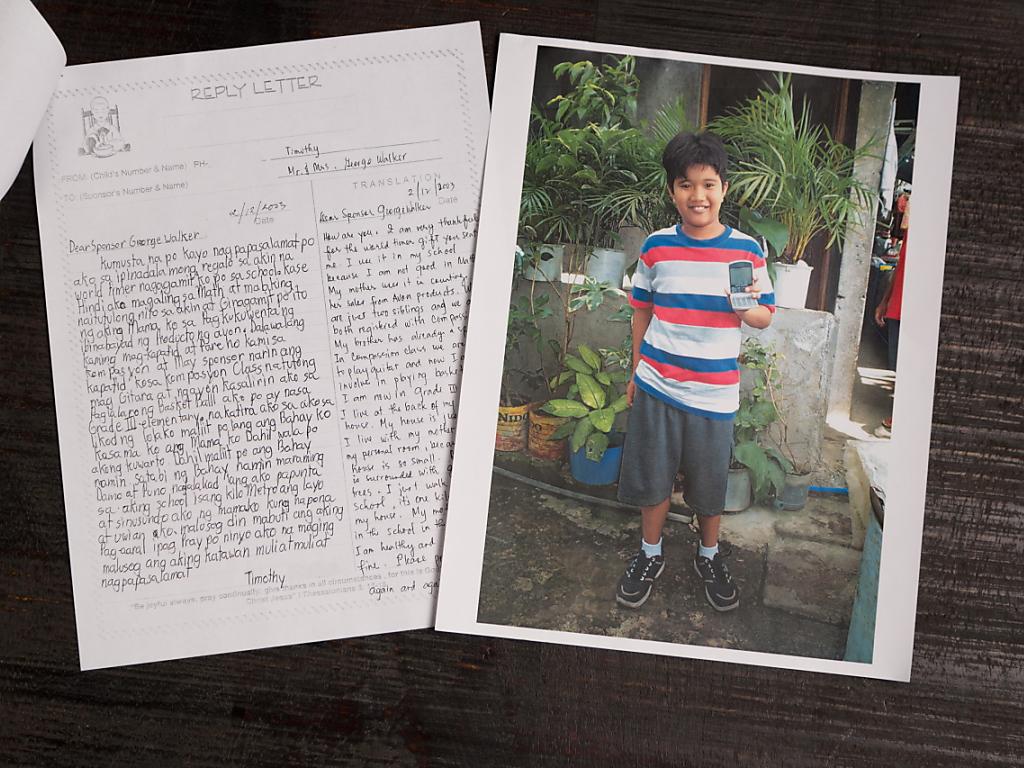 REPLY LETTER
FROM: (Child's Number & Name) PH-
Timothy
TO: (Sponsor's Number & Name)
Mr. & Mrs. George Walker
2/12/2003
Date
Dear Sponsor George Walker
Kumusta na po kayo nagpapasalamat po
ako sa ipinadala mong regalo sa akin na
world timer nagagamit ko po sa school kase
Hindi ako magaling sa Math at mabiking
naitutulong nito sa akin at Ginagamit po ito
ng aking Mama ko sa Pagkukuwenta ng
ipinabayad ng Producto ng avon. Dalawa lang
kaming mag-kapatid at Pare ho kami sa
Kompasyon at may Sponser narin ang
kapatid kosa Kompasyon Class natutong
mag Gitara at ngayon Kasalirin ako sa
Paglalarong Basket Ball ako po ay nasa
Grade III-elementary. nakatira ako sa ako sa
Likod ng Loko maliit po lang ang Bahay ko
Kasama ko ang Mama ko Dahil wala po
akong kuwarto Dahil maliit pe ang Bahay
namin Satabi ng Bahay namin maraming
Damo at Puno naglalakad Lang ako papunta
sa aking school isang kilo Metro ang layo
at sinusundo ako ng mamako kung hapon a
at uwian ako. malosog din mabuti ang aking
Pag-aaral ipag Pray po ninyo ako na maging
malusog ang aking katawan muli at muli at
nagpapasalamat
Timothy
TRANSLATION
2/12/2003
Date
Dear Sponser George Walker
How are you. I am very thankful
for the world timer gift you sent
me. I use it in my school
because I am not good in Math
My mother uses it in counting
her sales from Avon products.
are just two siblings and we
both registered with Compass
My brother has already a
In Compassion class we are
to play guitar and now I
involve in playing basket
I am now in Grade III
I live at the back of my
house. My house is just
I live with my mother
my personal room because
house is so small.
is surrounded with
trees. I just walk
School, its one kil
my house. My mo
in the school in
I am healthy and
fine. Please
again and aga
"Be joyful always, pray continually; give thanks in all circumstances, for this is Go
Christ Jesus" I Thessalonians
NIDO